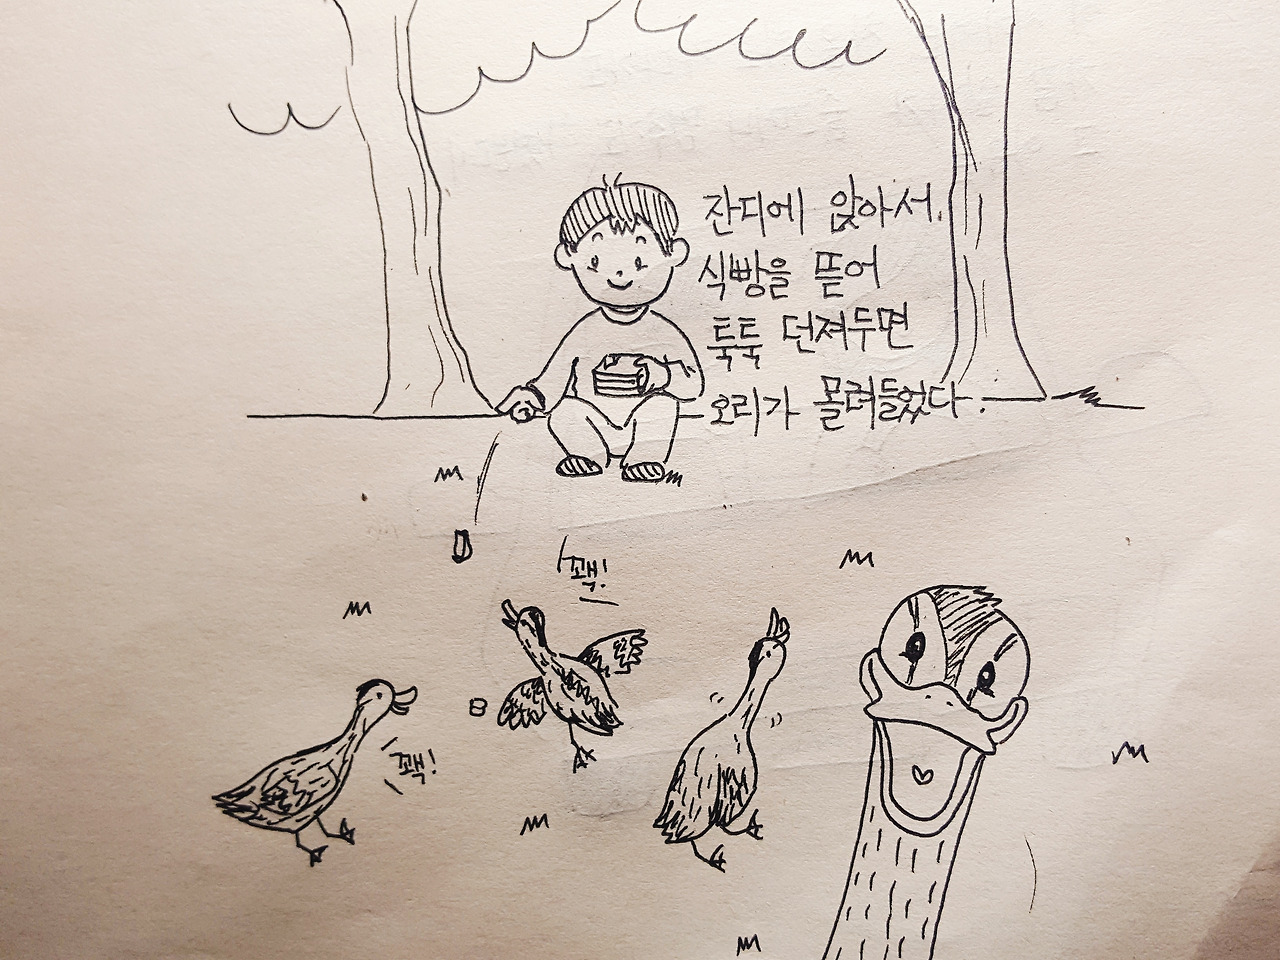 잔디에 앉아서.
식빵을 뜯어
툭툭 던져두면
오리가 몰려들었다.
꽥!
꽥!